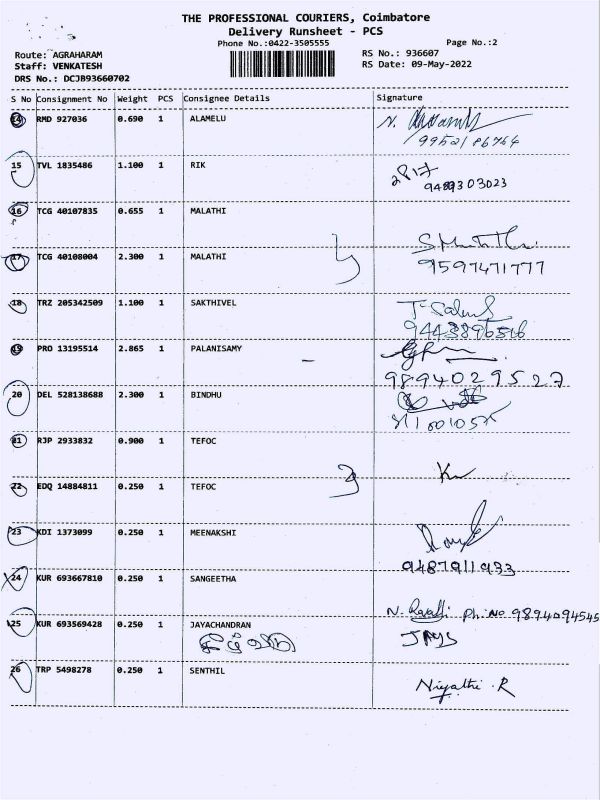 THE PROFESSIONAL COURIERS, Coimbatore
Delivery Runsheet - PCS
Phone No.:0422-3505555 Page No.:2
Route: AGRAHARAM RS No.: 936607
Staff: VENKATESH RS Date: 09-May-2022
DRS No.: DCJB93660702
S No Consignment No Weight PCS Consignee Details Signature
14 RMD 927036 0.690 1 ALAMELU
9952186764
15 TVL 1835486 1.100 1 RIK
9489303023
16 TCG 40107835 0.655 1 MALATHI
17 TCG 40108004 2.300 1 MALATHI
9597471777
18 TRZ 205342509 1.100 1 SAKTHIVEL
9443896516
19 PRO 13195514 2.865 1 PALANISAMY
9894029527
20 DEL 528138688 2.300 1 BINDHU
21 RJP 2933832 0.900 1 TEFOC
22 EDQ 14884811 0.250 1 TEFOC
23 KDI 1373099 0.250 1 MEENAKSHI
9487911933
24 KUR 693667810 0.250 1 SANGEETHA
N. Revathi Ph: No 9894094545
25 KUR 693569428 0.250 1 JAYACHANDRAN
JAYS
26 TRP 5498278 0.250 1 SENTHIL
Niyathi . R